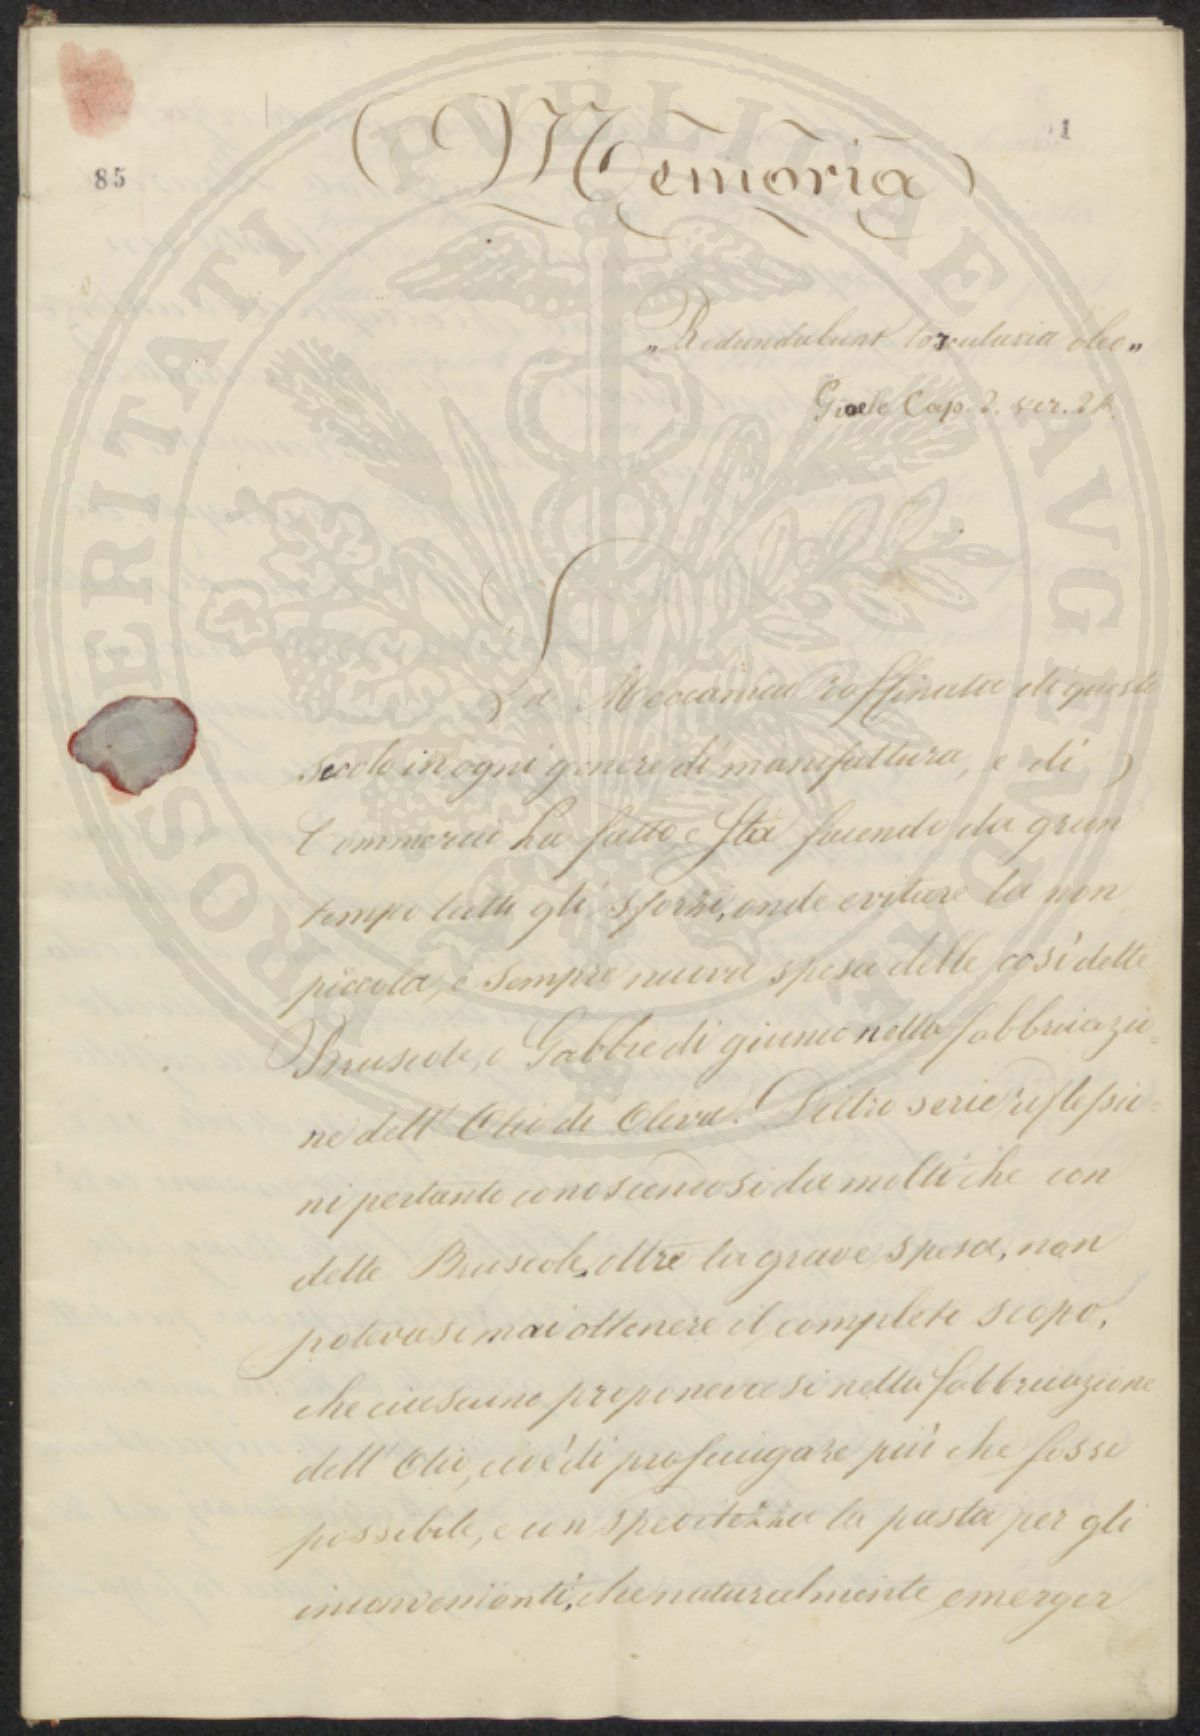 Memoria
1
85
„Redundabunt torcularia oleo„
Gioele Cap. 2. ver. 24
La Meccanica raffinata di questo
secolo in ogni genere di manifattura, e di
Commercio ha fatto, e sta facendo da gran
tempo tutti gli sforzi, onde evitare la non
piccola, e sempre nuova spesa delle così dette
Bruscole, o Gabbie di giunco nella fabbricazio=
ne dell' Olio di Oliva. Dietro serie riflessio=
ni pertanto conoscendosi da molti che con
dette Bruscole, oltre la grave spesa, non
potevasi mai ottenere il completo scopo,
che ciascuno proponevasi nella fabbricazione
dell' Olio, cioè di prosciugare più che fosse
possibile, e con speditezza la pasta per gli
inconvenienti, che naturalmente emerger
PROSPERITATI PVBLICAE AVGENDAE